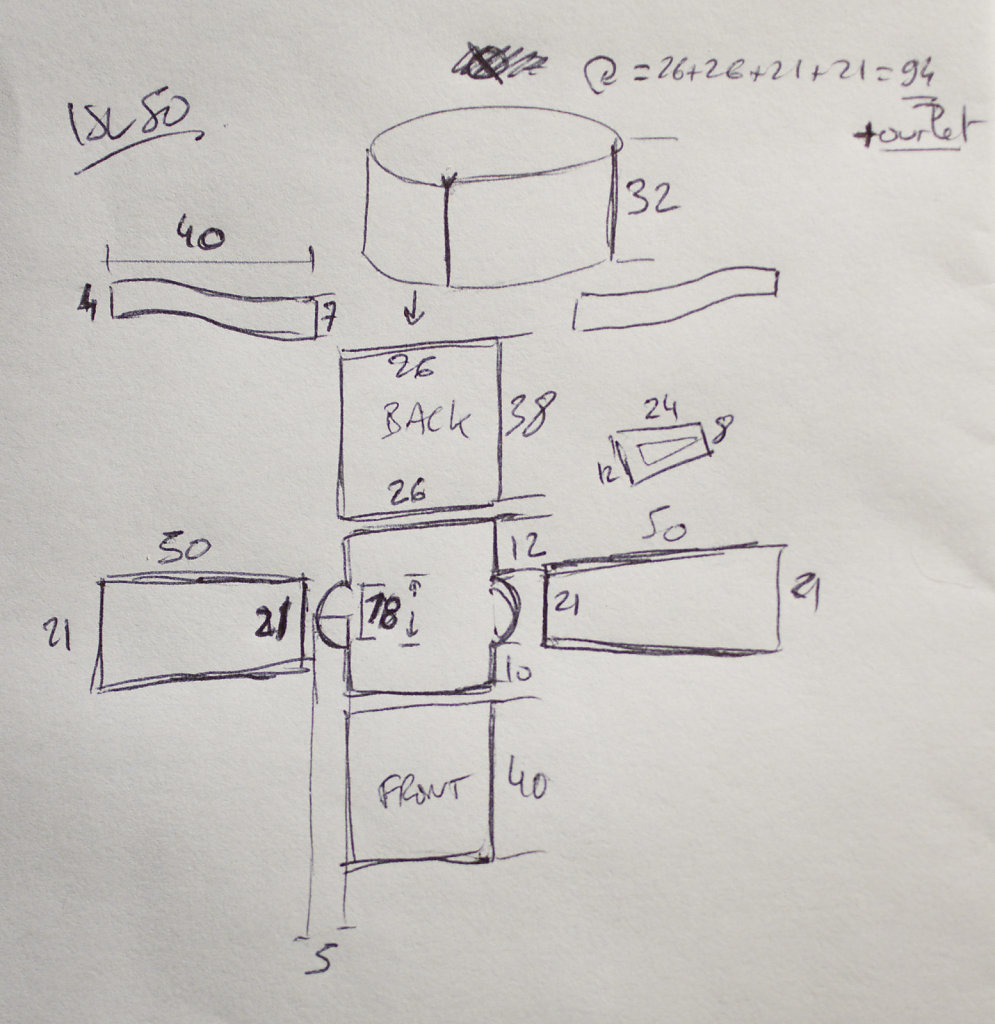 = 26+26+21+21 = 94
+ ourlet
ISL 50
32
40
4
7
26
BACK
38
26
24
8
12
50
12
50
21
21
18
21
21
10
FRONT
40
5